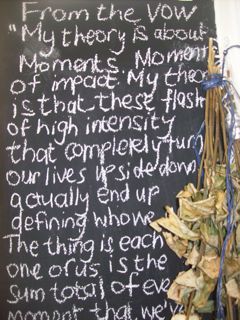 From the vow
"My theory is about
Moments. Moment
of impact. My theor
is that these flash
of high intensity
that completely turn
our lives upside down
actually end up
defining who we
The thing is each
one of us is the
sum total of eve
moment that we've